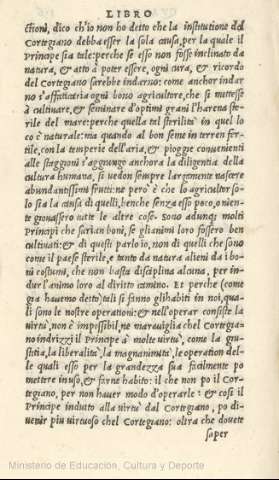 LIBRO
ctioni, dico ch'io non ho detto che la institutione del
Cortegiano debba esser la sola causa, per la quale il
Principe sia tale: perche se esso non fosse inclinato da
natura, & atto à poter essere, ogni cura, & ricordo
del Cortegiano sarebbe indarno: come anchor indar
no s'affaticaria ogni bono agricultore, che si mettesse
à cultivare, & seminare d'optimi grani l'harena ste
rile del mare: perche quella tal sterilità in quel lo
co è naturale: ma quando al bon seme in terren fer
tile, con la temperie dell'aria, & pioggie convenienti
alle staggioni s'aggiunge anchora la diligentia della
cultura humana, si vedon sempre largamente nascere
abundantissimi frutti: ne però è che lo agricultor so-
lo sia la causa di quelli, benche senza esso poco, o nien-
te giovassero tutte le altre cose. Sono adunque molti
Principi che sarian boni, se gli animi loro fossero ben
cultivati: & di questi parlo io, non di quelli che sono
come il paese sterile, & tanto da natura alieni da i bo-
ni costumi, che non basta disciplina alcuna, per in-
dur l'animo loro al diritto camino. Et perche (come
gia havemo detto) tali si fanno gli habiti in noi, qua-
li sono le nostre operationi: & nell'operar consiste la
virtu', non è impossibil, ne maraviglia che'l Cortegia-
no indrizzi il Principe à molte virtu', come la giu-
stitia, la liberalita', la magnanimita', le operation del-
le quali esso per la grandezza sua facilmente po
mettere in uso, & farne habito: il che non po il Cor-
tegiano, per non hauer modo d'operarle: & cosi il
Principe indutto alla virtu' dal Cortegiano, po di-
venir piu virtuoso che'l Cortegiano: oltra che dovete
saper
Ministerio de Educación, Cultura y Deporte